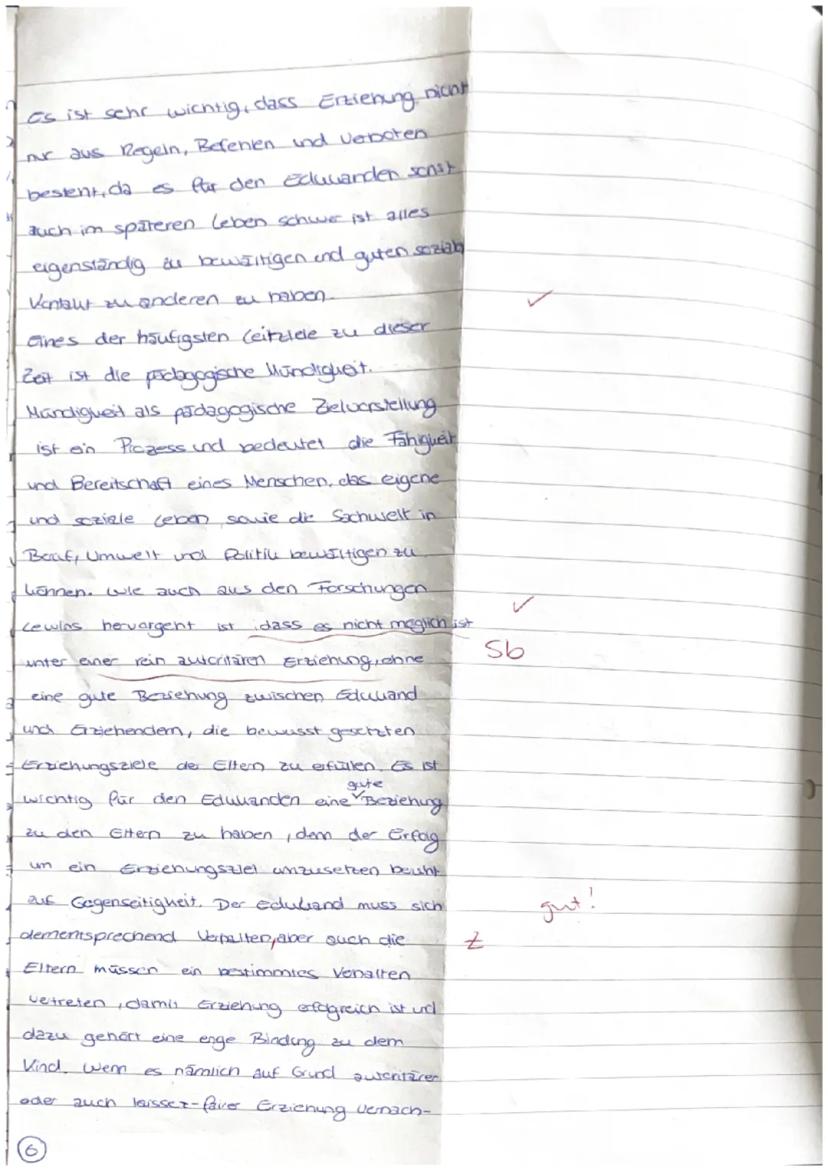 Es ist sehr wichtig, dass Erziehung nicht
nur aus Regeln, Befehlen und Verboten
besteht, da es für den Edukanden sonst
auch im späteren Leben schwer ist alles
eigenständig zu bewältigen und guten sozialen
Kontakt zu anderen zu haben. ✓
Eines der häufigsten Leitziele zu dieser
Zeit ist die pädagogische Mündigkeit.
Mündigkeit als pädagogische Zielvorstellung
ist ein Prozess und bedeutet die Fähigkeit
und Bereitschaft eines Menschen, das eigene
und soziale Leben, sowie die Sachwelt in
Beruf, Umwelt und Politik bewältigen zu
können. Wie auch aus den Forschungen ✓
Lewins hervorgeht ist, dass es nicht möglich ist
unter einer rein autoritären Erziehung, ohne Sb
eine gute Beziehung zwischen Edukand
und Erziehendem, die bewusst gesetzten
Erziehungsziele der Eltern zu erfüllen. Es ist
wichtig für den Edukanden eine gute Beziehung
zu den Eltern zu haben, denn der Erfolg
um ein Erziehungsziel umzusetzen beruht
auf Gegenseitigkeit. Der Edukand muss sich gut!
dementsprechend Verhalten, aber auch die Z
Eltern müssen ein bestimmtes Verhalten
vertreten, damit Erziehung erfolgreich ist und
dazu gehört eine enge Bindung zu dem
Kind. Wenn es nämlich auf Grund autoritärer
oder auch laissez-faire Erziehung vernach-
6